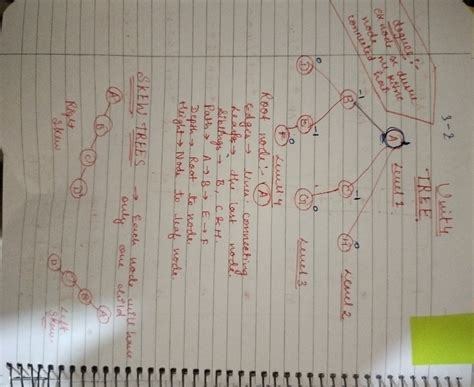 Unit 4
TREE
3-2
degree:-
node
connected
A
Level 1
B
-1
C
-1
H
0
Level 2
D
0
E
-1
G
0
Level 3
F
0
Level 4
Root node:- A
Edges → line connecting
Leads → the last node.
Siblings → B, C & H.
Path → A → B → E → F
Depth → Root to node.
Height → Node to leaf node.
SKEW TREES → Each node will have
only one child
A
B
C
D
Right
Skew
A
B
C
D
Left
Skew